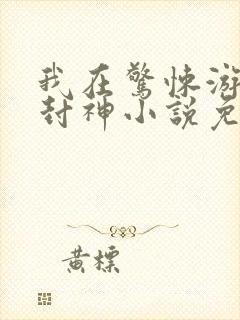 我在驚悚游
封神小說免
黃標